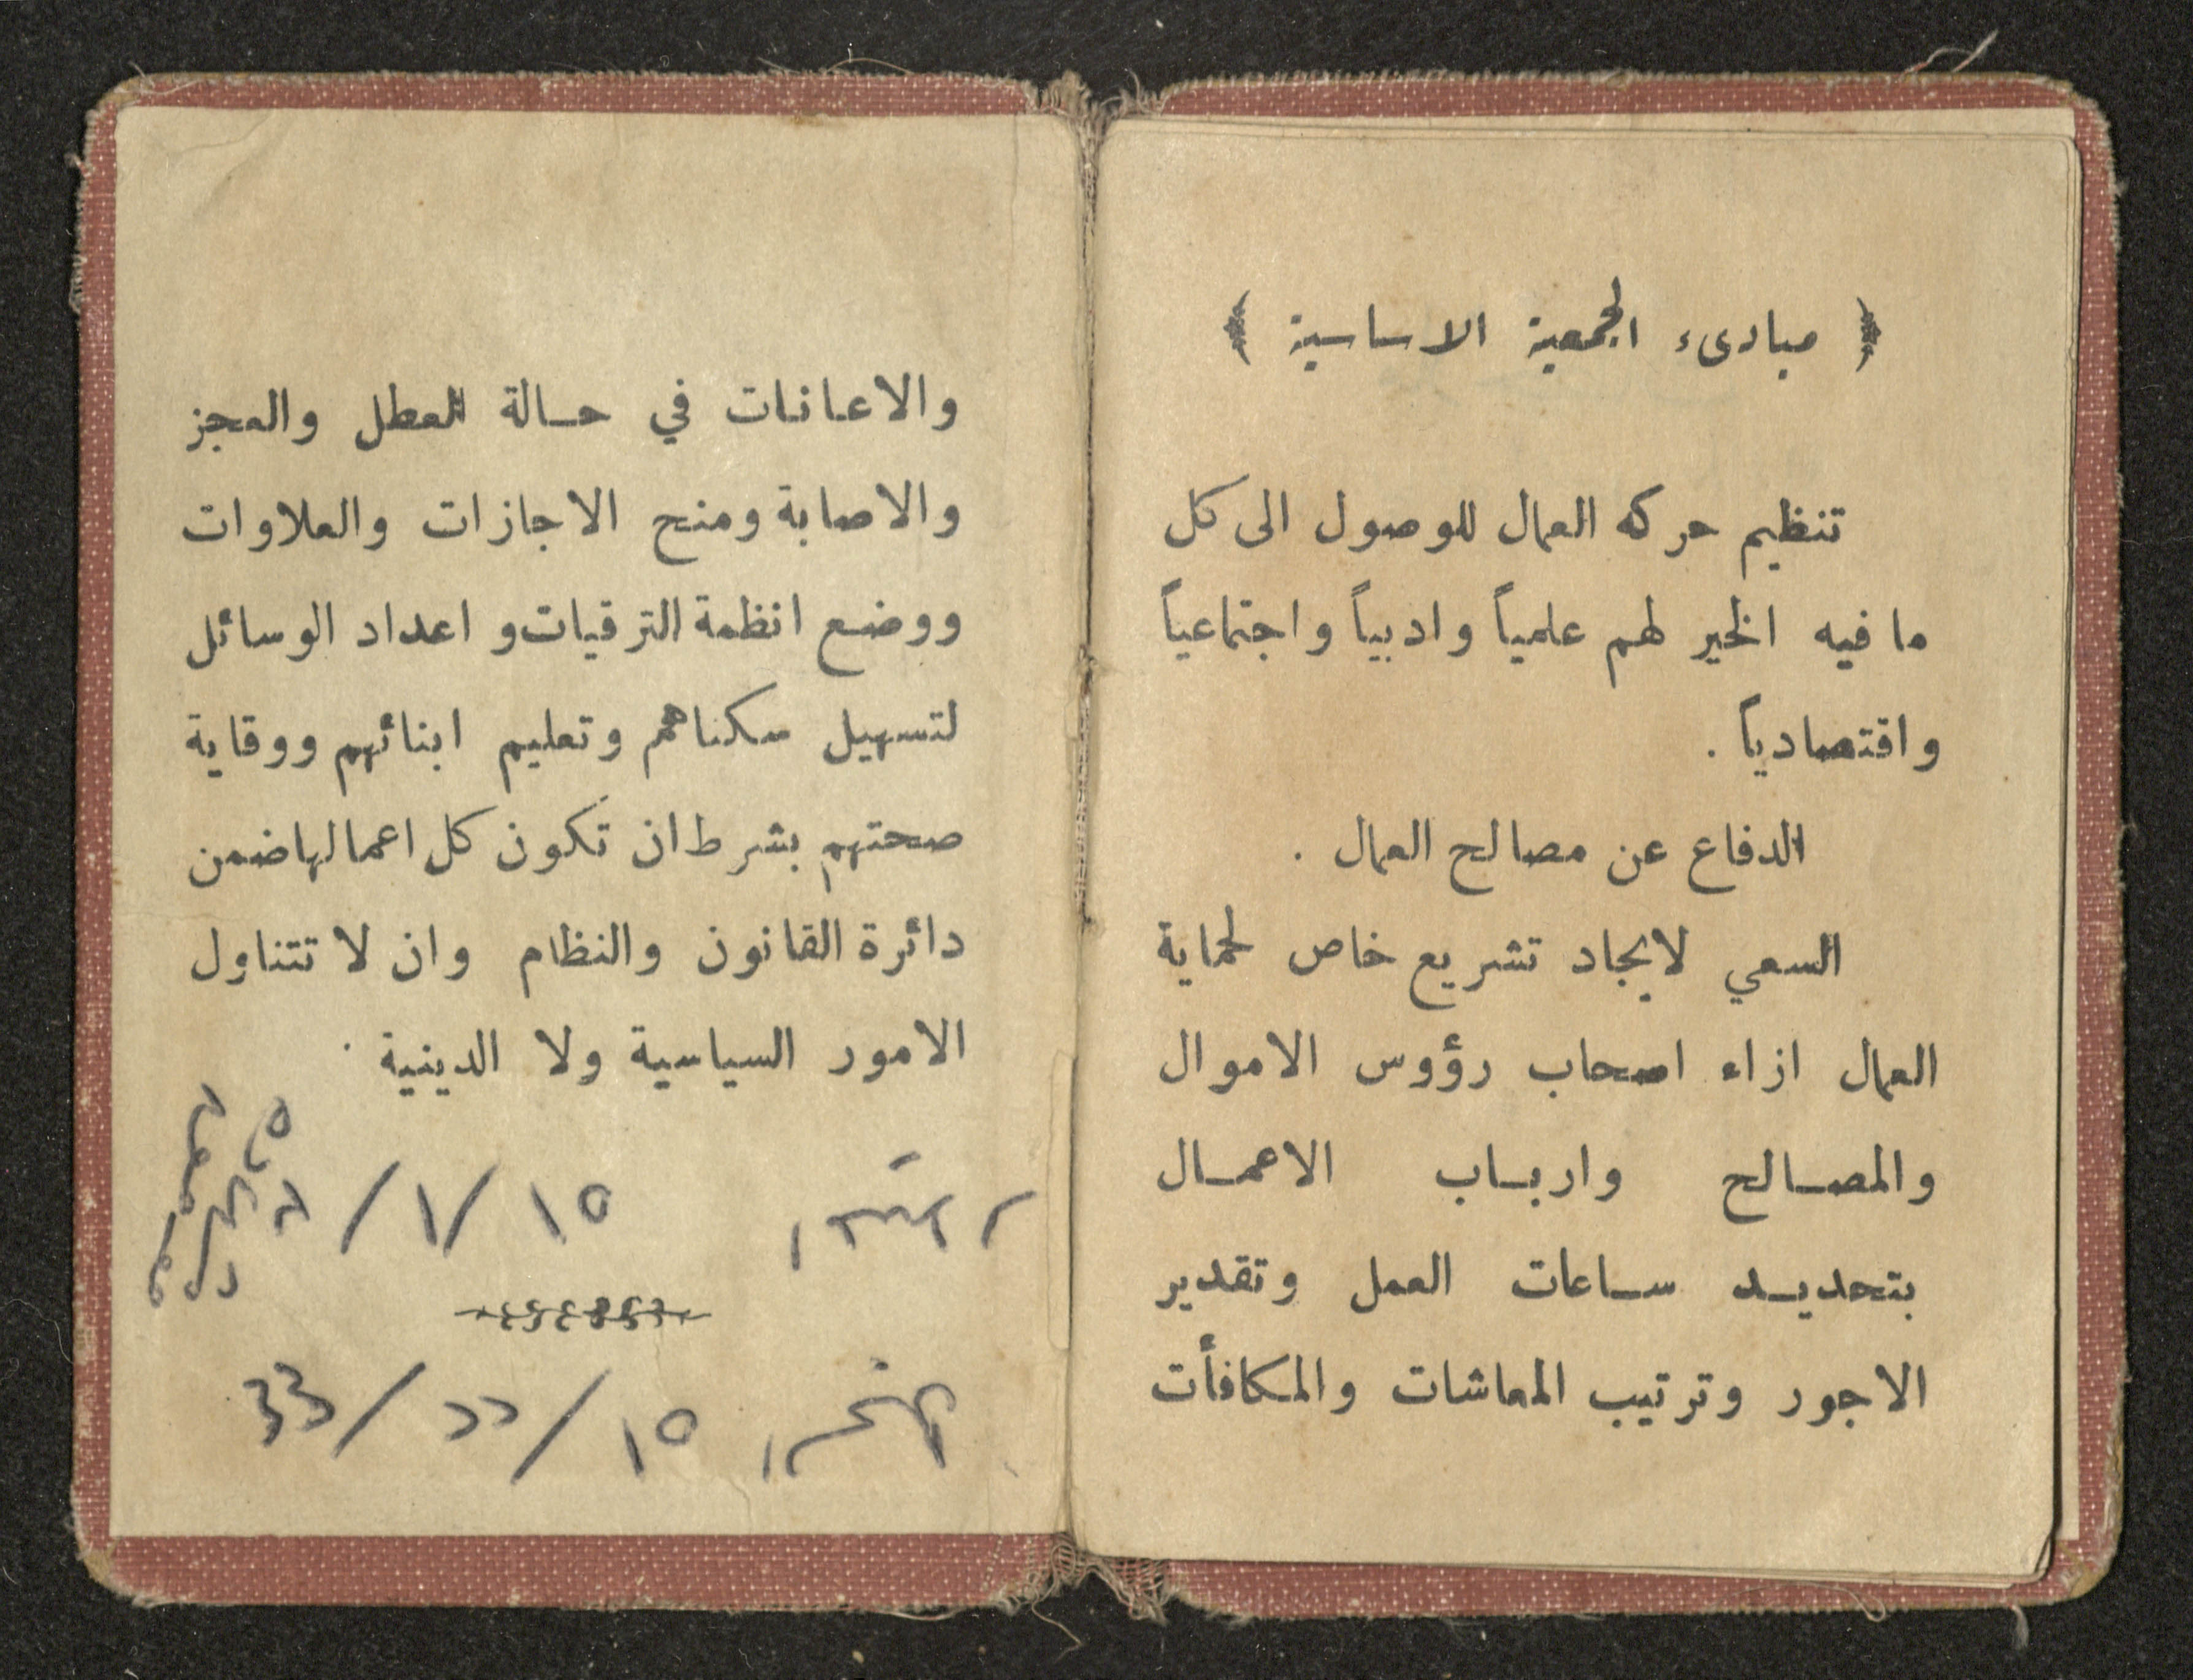 ﴿ مبادىء الجمعية الاساسية ﴾
تنظيم حركه العمال للوصول الى كل
ما فيه الخير لهم علمياً وادبياً واجتماعياً
واقتصادياً .
الدفاع عن مصالح العمال .
السعي لايجاد تشريع خاص لحماية
العمال ازاء اصحاب رؤوس الاموال
والمصالح وارباب الاعمال
بتحديد ساعات العمل وتقدير
الاجور وترتيب المعاشات والمكافأت
والاعانات في حالة العطل والعجز
والاصابة ومنح الاجازات والعلاوات
ووضع انظمة الترقيات و اعداد الوسائل
لتسهيل سكناهم وتعليم ابنائهم ووقاية
صحتهم بشرط ان تكون كل اعمالها ضمن
دائرة القانون والنظام وان لا تتناول
الامور السياسية ولا الدينية .
١٥ / ١ /
١٥ / /